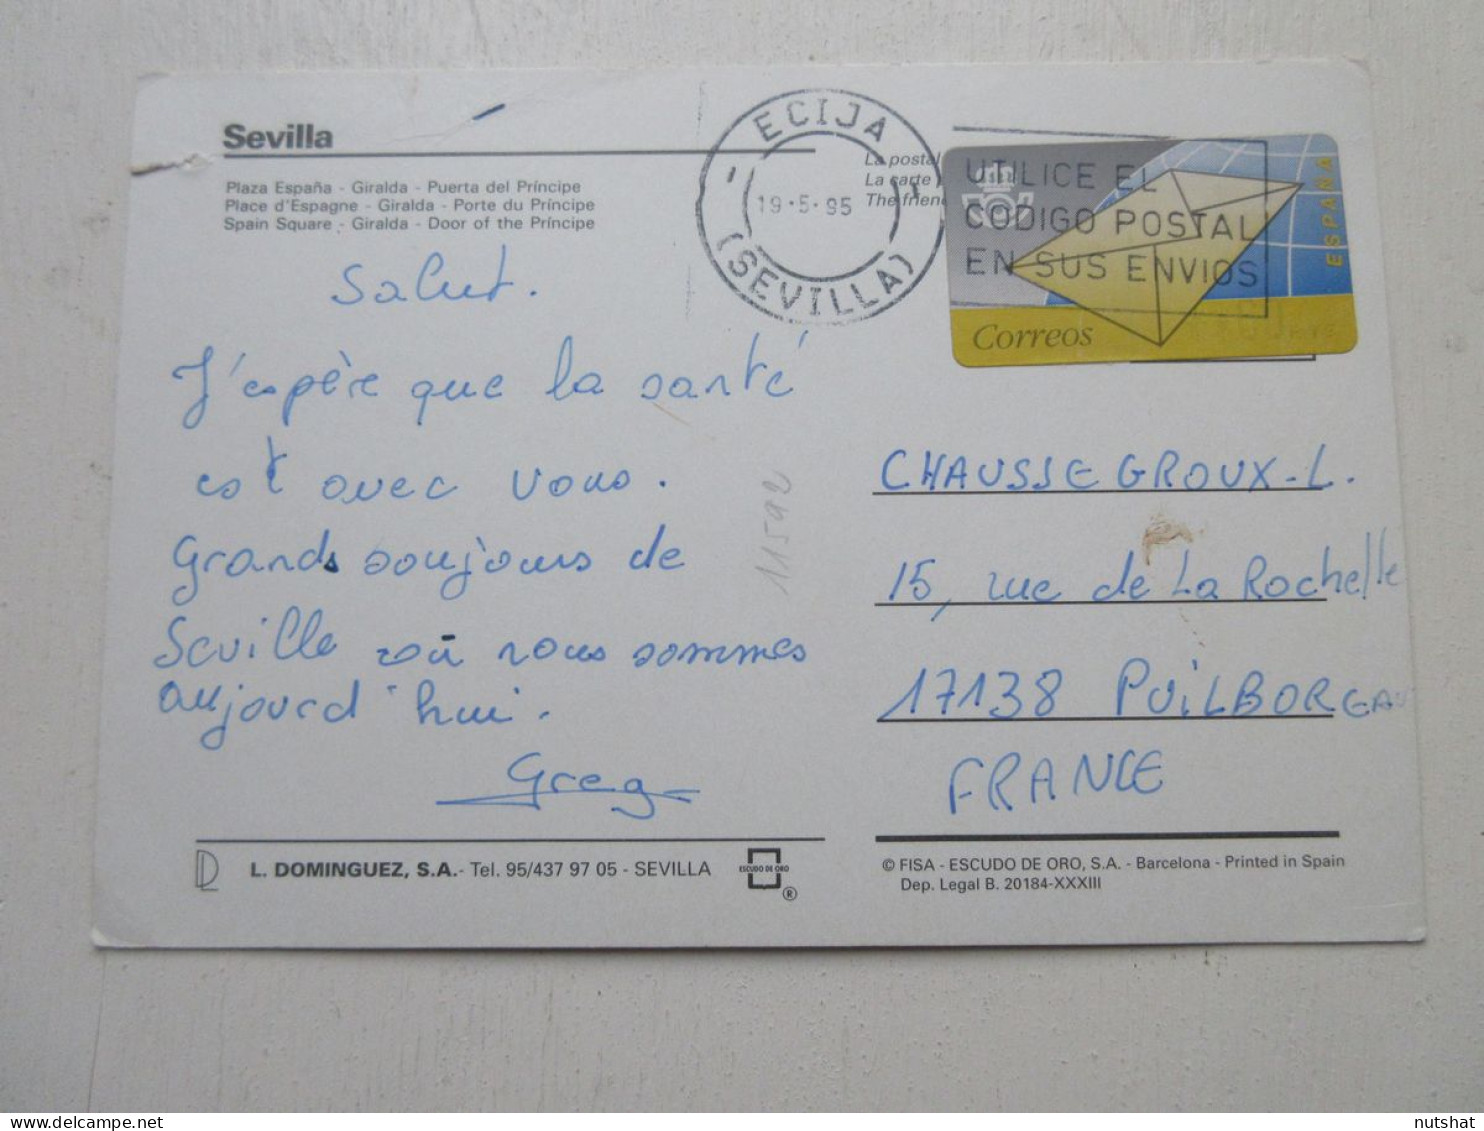 Sevilla
Plaza España - Giralda - Puerta del Príncipe
Place d'Espagne - Giralda - Porte du Príncipe
Spain Square - Giralda - Door of the Príncipe
Salut.
J'espère que la santé
est avec vous.
Grands soujours de
Seville où nous sommes
aujourd'hui.
Greg
11592
L. DOMINGUEZ, S.A.- Tel. 95/437 97 05 - SEVILLA
ESCUDO DE ORO
®
ECIJA
19·5·95
(SEVILLA)
La postal
La carte
The frien
UTILICE EL
CODIGO POSTAL
EN SUS ENVIOS
ESPAÑA
Correos
CHAUSSEGROUX-L.
15, rue de La Rochelle
17138 PUILBOREAU
FRANCE
© FISA - ESCUDO DE ORO, S.A. - Barcelona - Printed in Spain
Dep. Legal B. 20184-XXXIII
nutshat